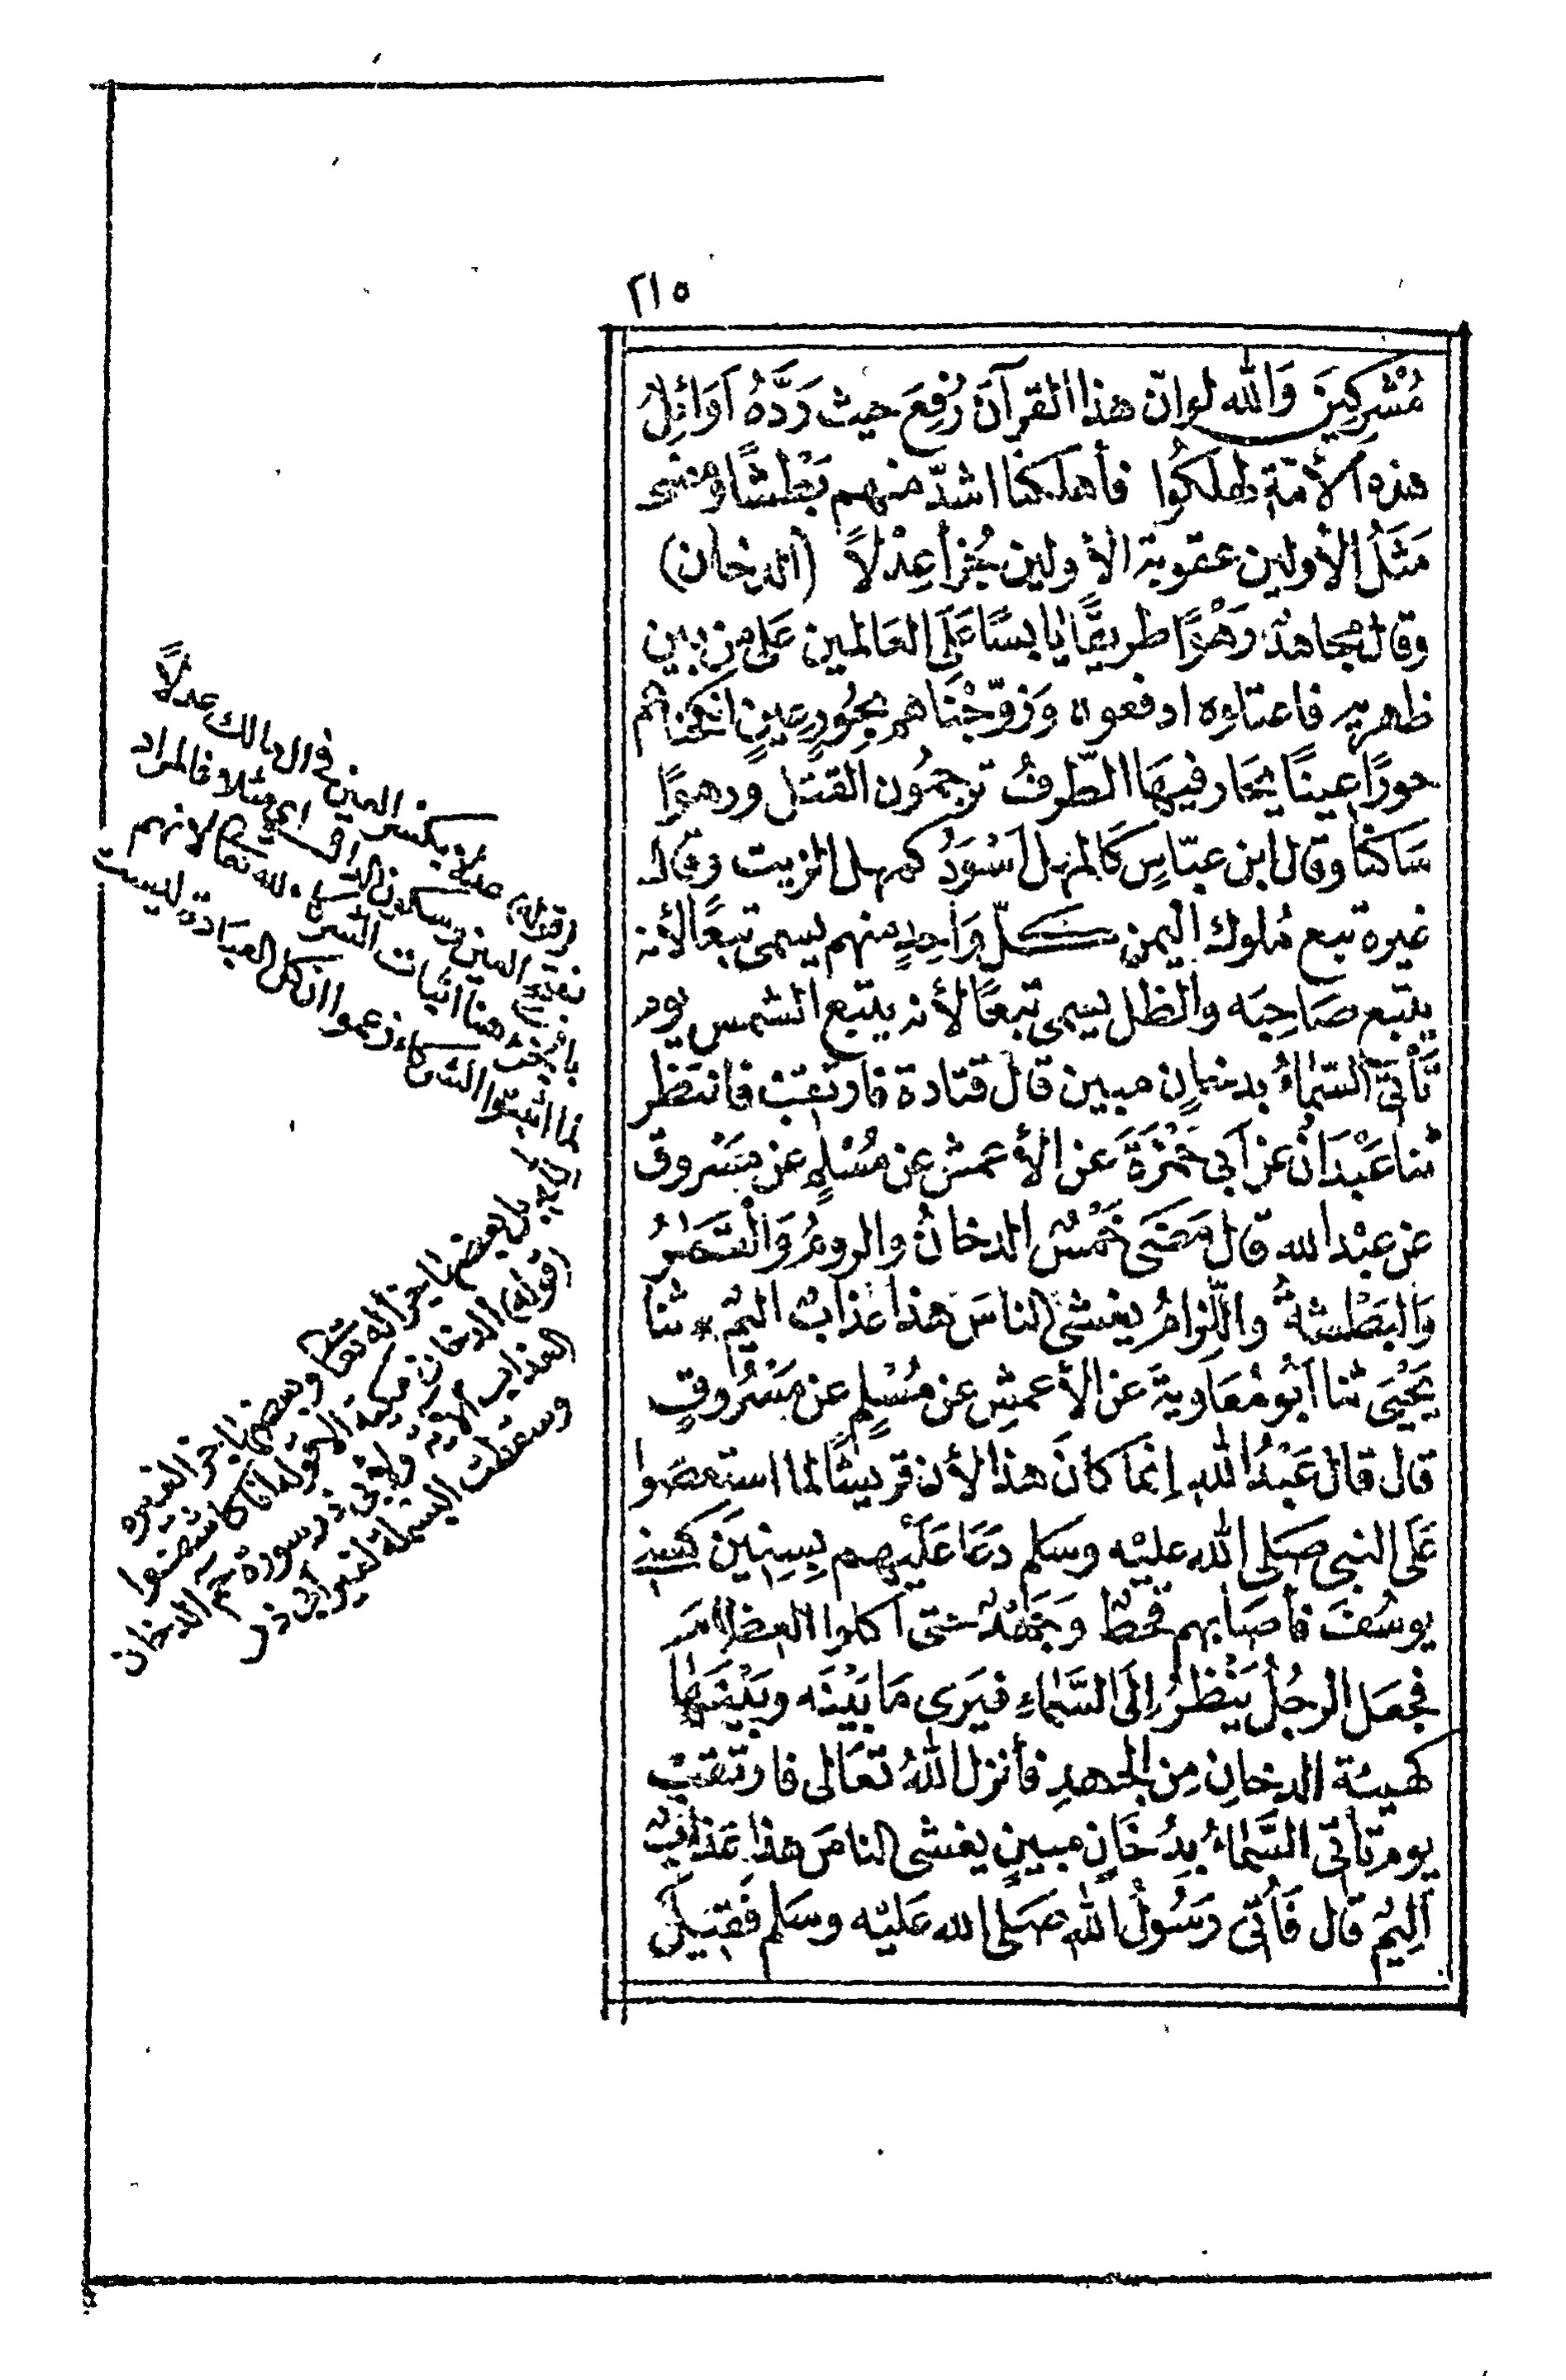 ٢١٥
مُشْرِكِينَ وَاللّٰه لو انّ هذا القرآنَ رُفِعَ حيث رَدَّهُ اَوَائِلُ
هذه الأمّة لهلَكُوا فأهلكنا اشدّ منهم بَطْشًا ومضى
مَثَلُ الأولين عقوبة الأولين جُزأ عِدْلاً (الدخان)
وقال مجاهدٌ رَهْوًا طريقًا يابسًا عَلَى العَالمين عَلى مَن بين
ظهريه فاعتلوه ادفعوه وَزَوّجْنَاهم بِحُورٍ عِينٍ انكحناهم
حورًا عينًا يَحَار فيهَا الطّرفُ ترجمُون القتل ورهوًا
سَاكنًا وقال ابن عبّاسٍ كَالمهل اَسْوَدُ كمهل الزيت وقال
غيره تبع مُلوك اليمن كلّ وَاحِدٍ منهم يسمى تبعًا لأنه
يتبع صَاحِبَه والظل يسمى تبعًا لأنه يتبع الشمس يوم
تَأتِي السّمَاءُ بدخانٍ مبين قال قتادة فارتقب فانتظر
ثنا عَبْدَانُ عن اَبي حَمْزَةَ عَن الأعمش عن مُسْلمٍ عن مَسْروق
عن عبْد الله قال مَضَى خَمْسٌ الدخانُ والرومُ وَالْقَمَرُ
وَالبَطْشةُ واللّزَامُ يغشى الناسَ هذا عذابٌ اليمٌ * ثنا
يَحْيَى ثنا اَبُو مُعَاويةَ عَن الأعمشِ عن مُسْلمٍ عن مَسْرُوقٍ
قال قال عَبْدُ اللّٰهِ اِنمَا كانَ هذا لأن قريشًا لما استعصَوا
عَلَى النبي صَلى اللّٰه عليْه وسَلم دعَا عَلَيْهم بِسِنِينَ كسِني
يوسُفَ فأصَابهم قحطٌ وَجَهْدٌ حتى اَكلوا العظامَ
فجعَل الرجُلُ يَنْظرُ اِلَى السَّمَاءِ فيَرَى مَا بَيْنَه وبَيْنَهَا
كهيئة الدخانِ مِن الجهدِ فأنزل اللّٰهُ تعَالى فارتقب
يوم تأتي السَّمَاءُ بِدُخَانٍ مبينٍ يغشى الناسَ هذا عَذابٌ
اَلِيمٌ قال فَأُتي رَسُولُ اللّٰه صَلى الله عَليْه وسَلم فَقيلَ
(قوله) عدلا بكسر العين في ال لك عدلاً
بفتح العين وسكون الدال اي مثلا فالمراد
هنا اثبات الشركاء لله تعَا لانهم
لما اثبتوا الشركاء زعموا ان كل العبَادة ليست
لله بل بعضها جزا له تعَا وبعضها جزا لغيره
(قوله) الدخان مكية الا قوله انا كاشفوا
العذاب الآية ولابي ذر سورة حم الدخان
وسقطت البسملة لغير أبي ذر